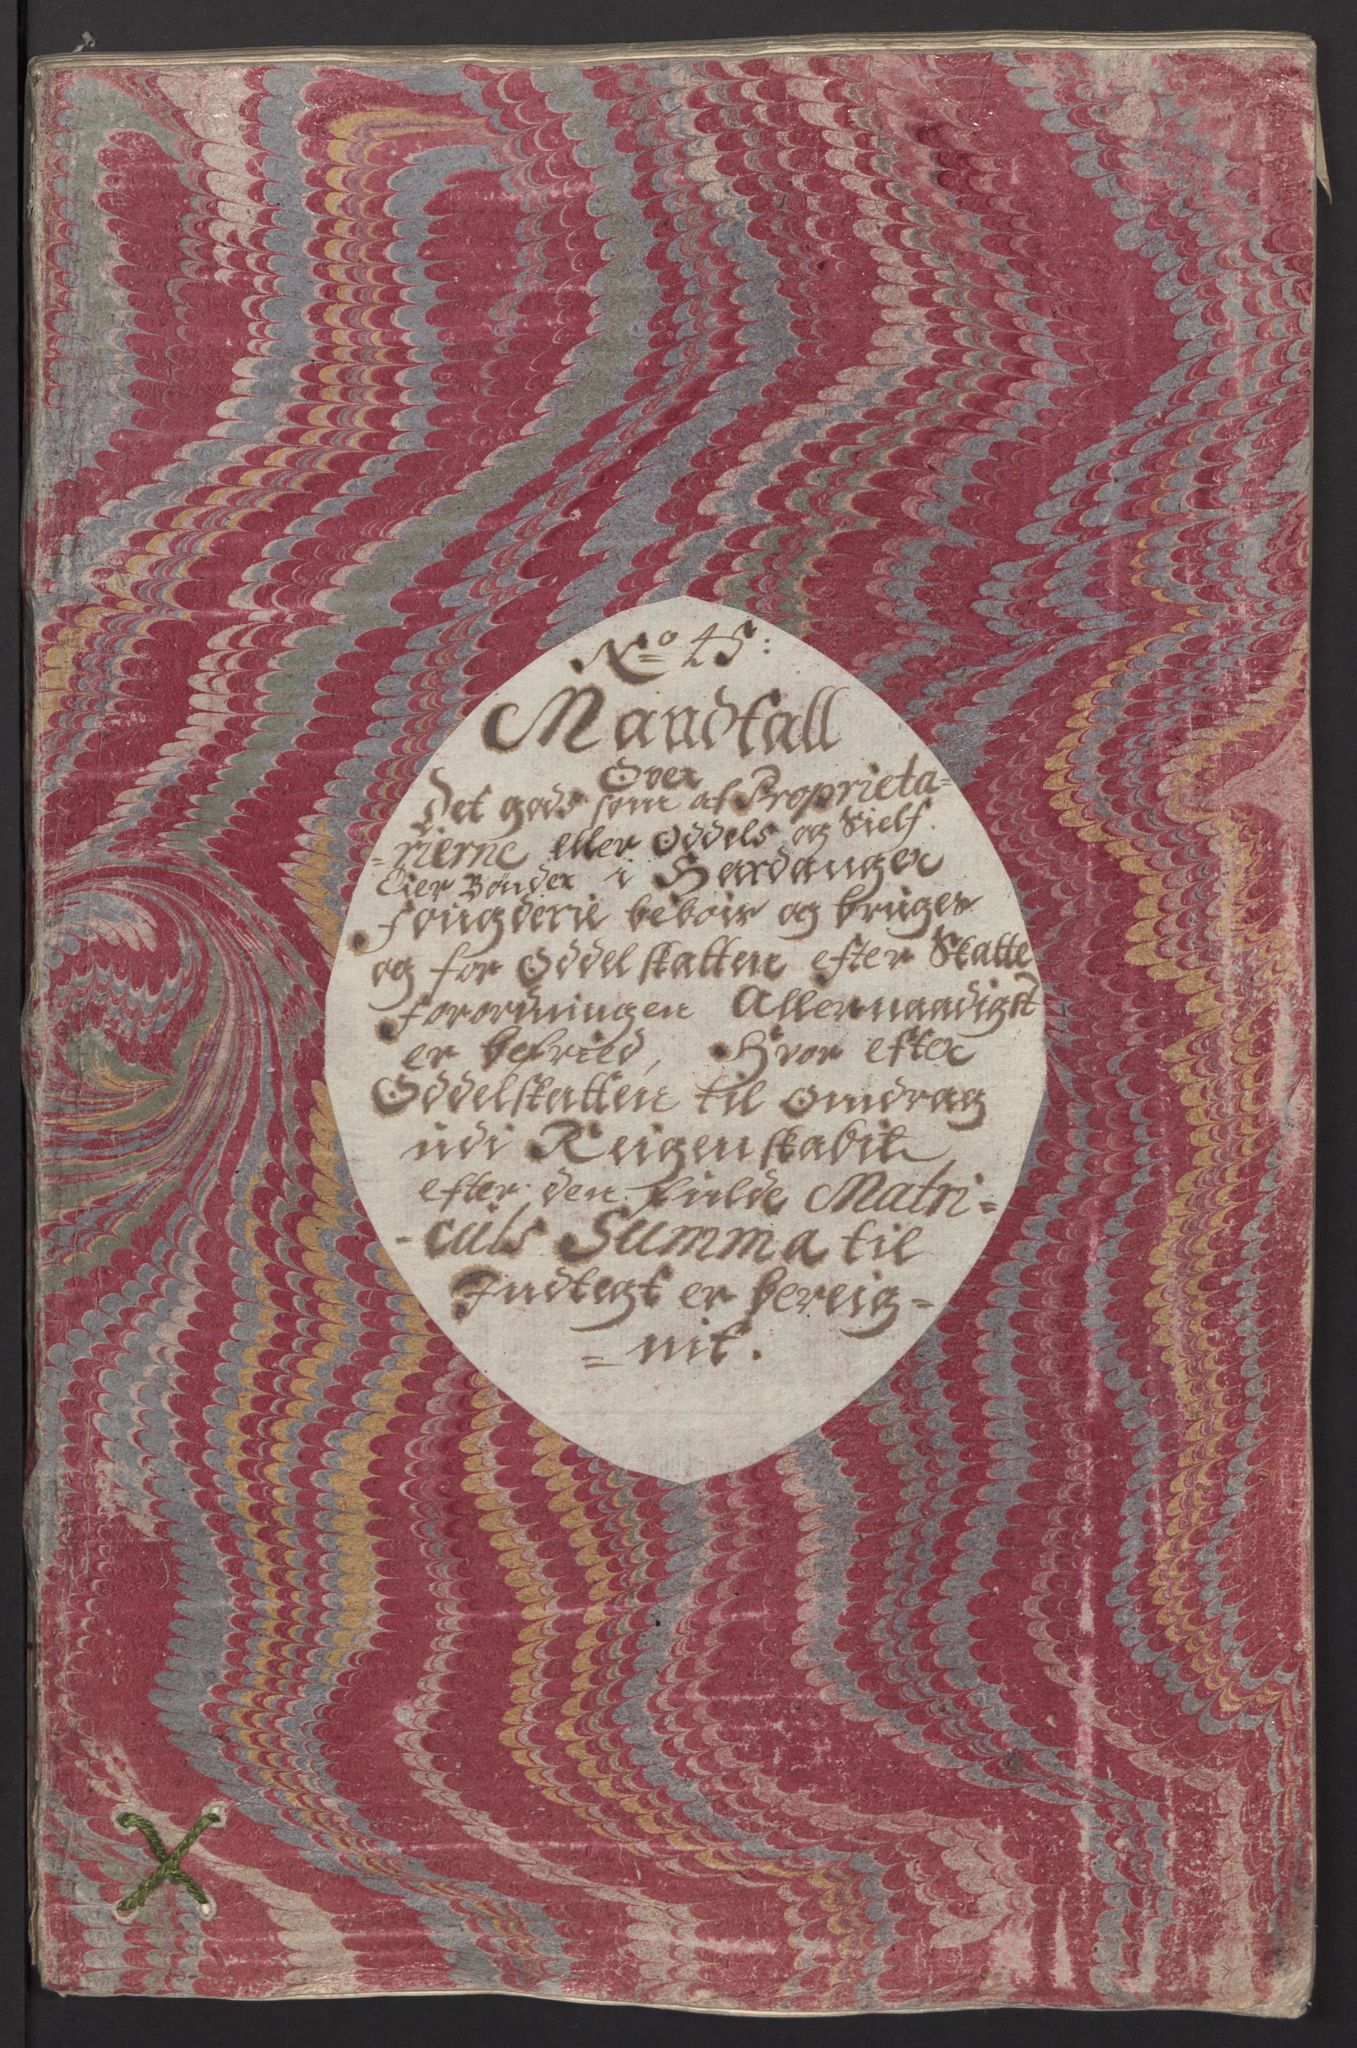 No 45:
Mandtall
Over
det gods som af Proprieta-
-rierne eller Oddels og Sielf
Eier Bønder i Hardanger
fougderie bebois og bruges
og for Oddelskatten efter Skatte
forordningen Allernaadigst
er befried, Hvor efter
Oddelskatten til omdrag
udi Reigenskabit
efter den fulde Matri=
-culs Summa til
Indtegt er bereig=
=nit.